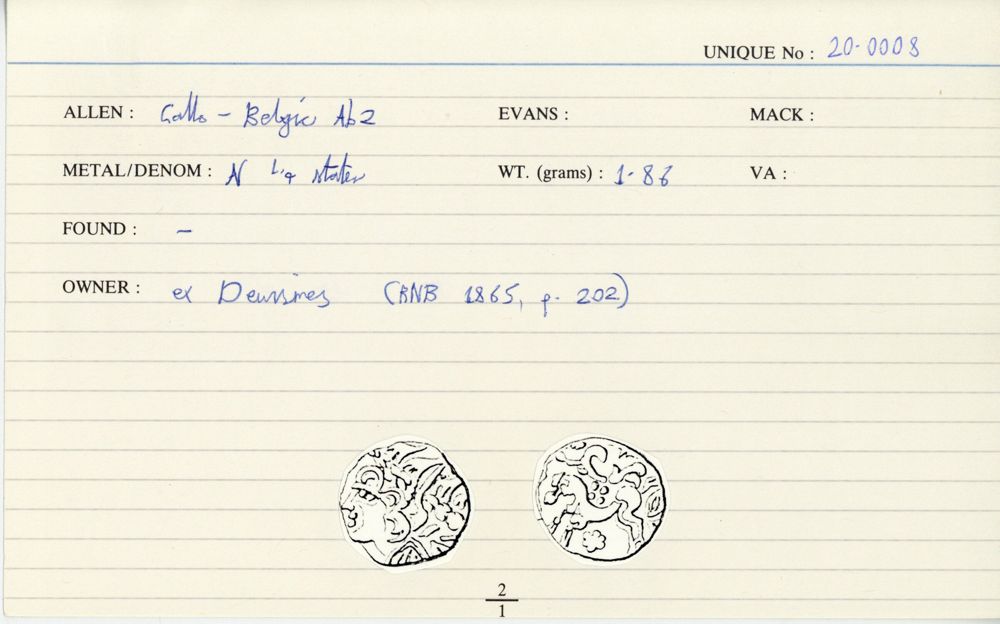 UNIQUE No : 20·0008
ALLEN : Gallo - Belgic Ab2 EVANS : MACK :
METAL/DENOM : N 1/4 stater WT. (grams) : 1·86 VA :
FOUND : –
OWNER : ex (RNB 1865, p. 202)
2
1